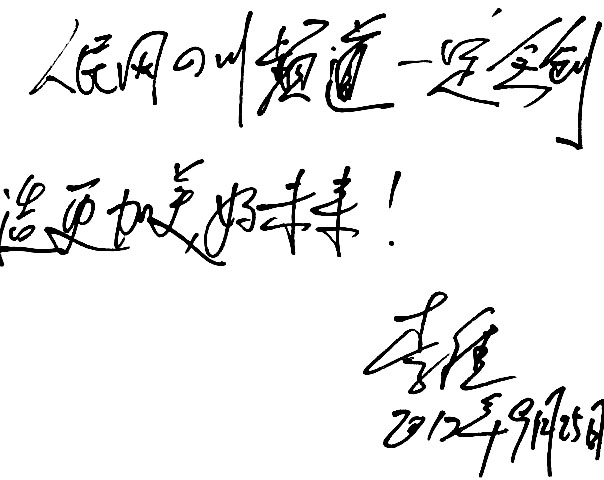 人民网四川频道一定会创
造更加美好未来！
李
2012年9月25日